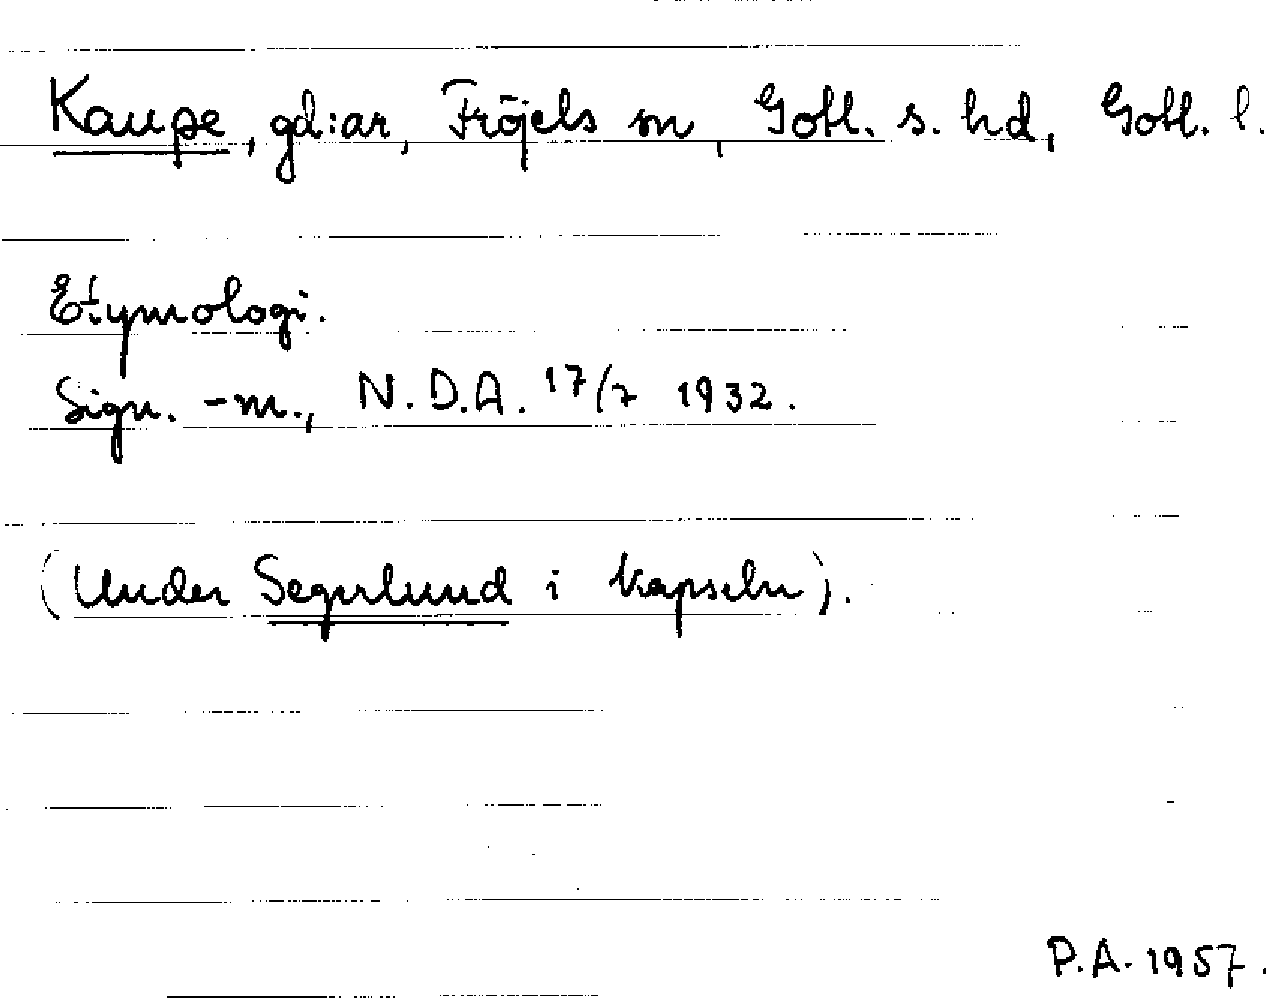 Kaupe, gd:ar, Fröjels sn, Gotl. s. hd, Gotl. l.
Etymologi.
Sign. -m., N.D.A. 17/7 1932.
(Under Segerlund i kapseln).
P.A. 1957.